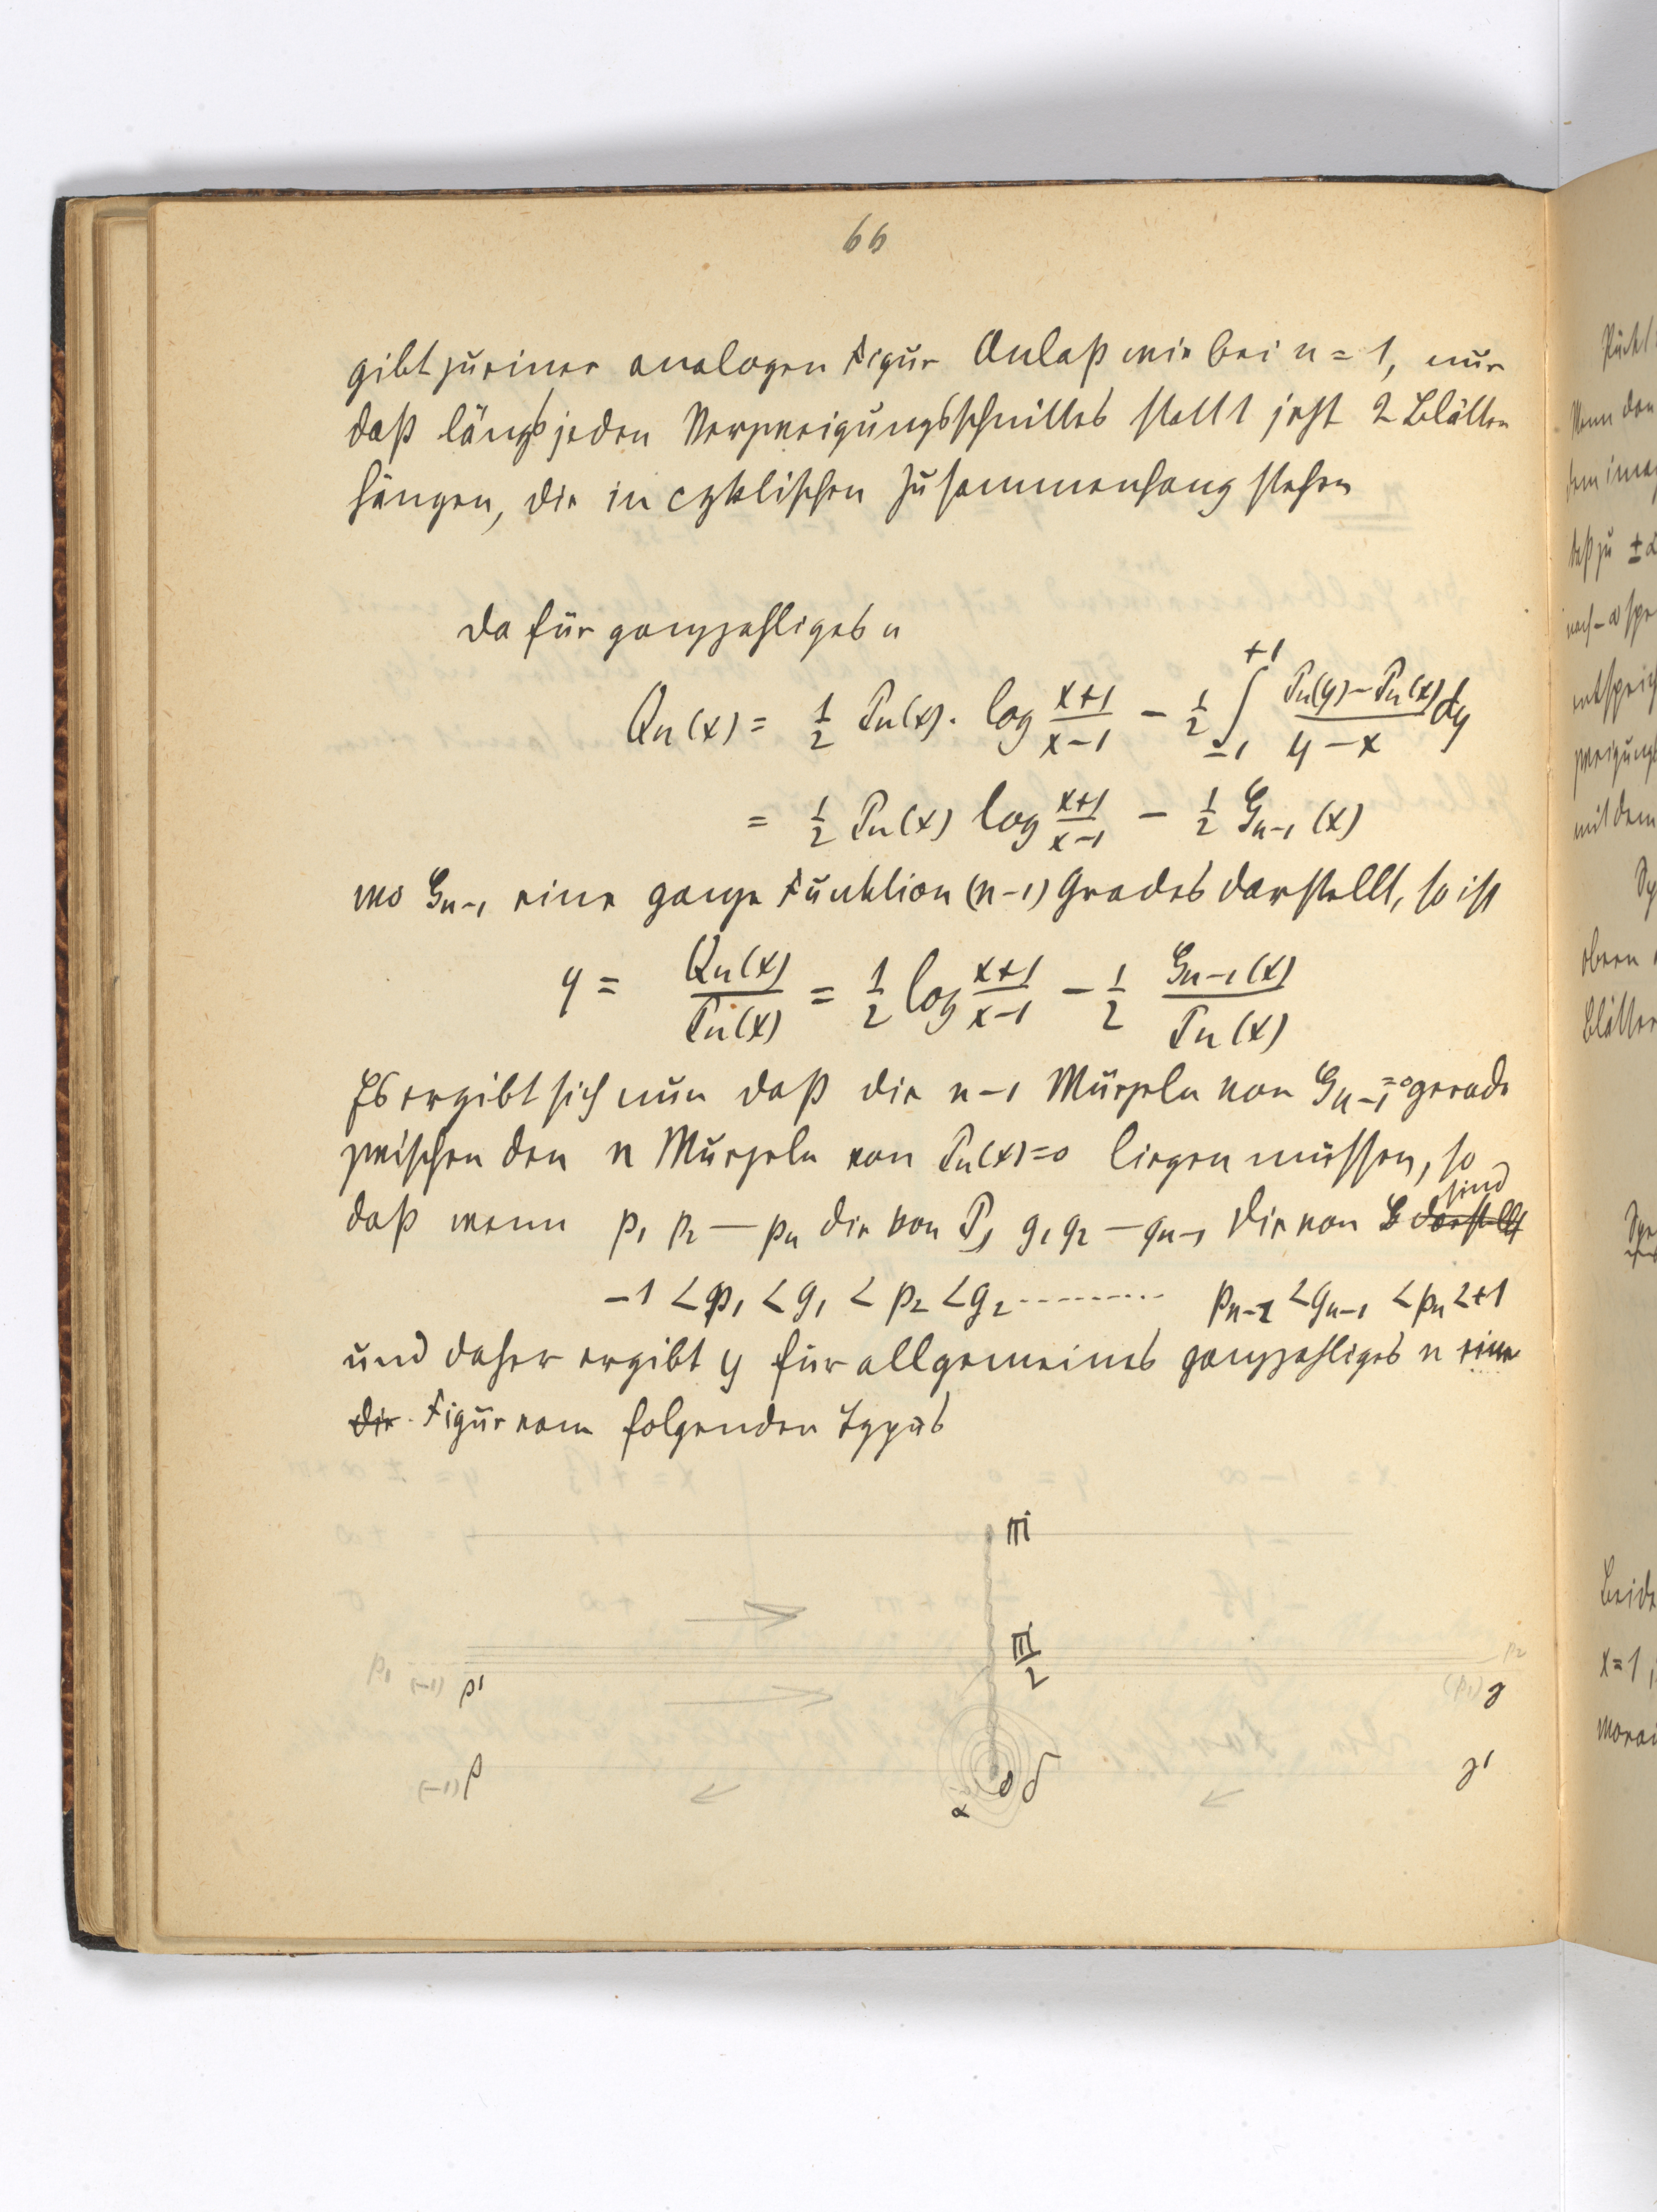 66
gibt zu einer analogen Figur Anlaß wie bei n = 1, nur
daß längs jeden Verzweigungsschnittes statt 1 jetzt 2 Blätter
hängen, die in cyklischen Zusammenhang stehen
Da für ganzzahliges n
Qn(x) = 1/2 Pn(x) · log (x+1)/(x−1) − 1/2 ∫_{−1}^{+1} (Pn(y) − Pn(x))/(y − x) dy
= 1/2 Pn(x) log (x+1)/(x−1) − 1/2 G_{n−1}(x)
wo G_{n−1} eine ganze Funktion (n−1) Grades darstellt, so ist
y = Qn(x)/Pn(x) = 1/2 log (x+1)/(x−1) − 1/2 G_{n−1}(x)/Pn(x)
Es ergibt sich nun daß die n−1 Würzeln von G_{n−1} = 0 gerade
zwischen den n Würzeln von Pn(x) = 0 liegen müssen, so
daß wenn p1 p2 — pn die von P, g1 g2 — gn−1 die von G darstellt sind
−1 < p1 < g1 < p2 < g2 ......... pn−1 < gn−1 < pn < +1
und daher ergibt y für allgemeines ganzzahliges n eine
die Figur vom folgenden Typus
πi
π/2
p1 (−1) β' p2
(p1) γ
(−1) β γ'
α 0 δ